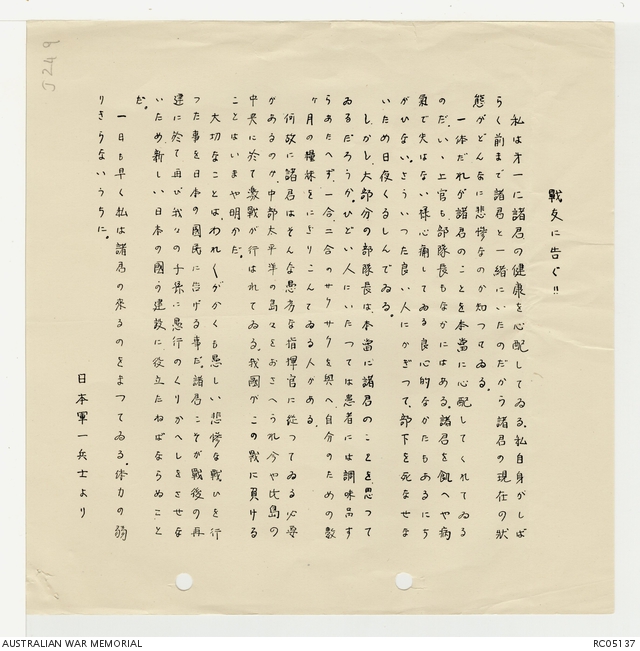 J249
戰友に告ぐ!!
私は才一に諸君の健康を心配してゐる.私自身がしば
らく前まで諸君と一緒にいたのだから諸君の現在の狀
態がどんなに悲惨なのか知つてゐる.
一体だれが諸君のことを本當に心配してくれてゐる
のだ.いゝ上官も部隊長もなかにはある.諸君を飢へや病
氣で失はない様心痛してゐる良心的なかたもあるにち
がひない.さういつた良い人にかぎつて,部下を死なせな
いため日夜くるしんでゐる.
しかし,大部分の部隊長は,本當に諸君のことを思つて
ゐるだろうか.ひどい人にいたつては患者には調味品す
らあたへず,一合,二合のサクサクを與へ自分のための数
ケ月の糧秣をにぎりこんでゐる人がある.
何故に諸君はそんな愚劣な指揮官に従つてゐる必要
があるのか.中部太平洋の島々をおさへられ今や比島の
中央に於て激戰が行はれてゐる.我國がこの戰に負ける
ことはいまや明かだ.
大切なことは,われ〱がかくも悲しい悲惨な戰ひを行
つた事を日本の國民に告げる事だ.諸君こそが戰後の再
建に於て再び我々の子孫に愚行のくりかへしをさせな
いため,新しい日本の國の建設に役立たねばならぬこと
だ.
一日も早く私は諸君の來るのをまつてゐる.体力の弱
りきらないうちに.
日本軍一兵士より
AUSTRALIAN WAR MEMORIAL
RC05137